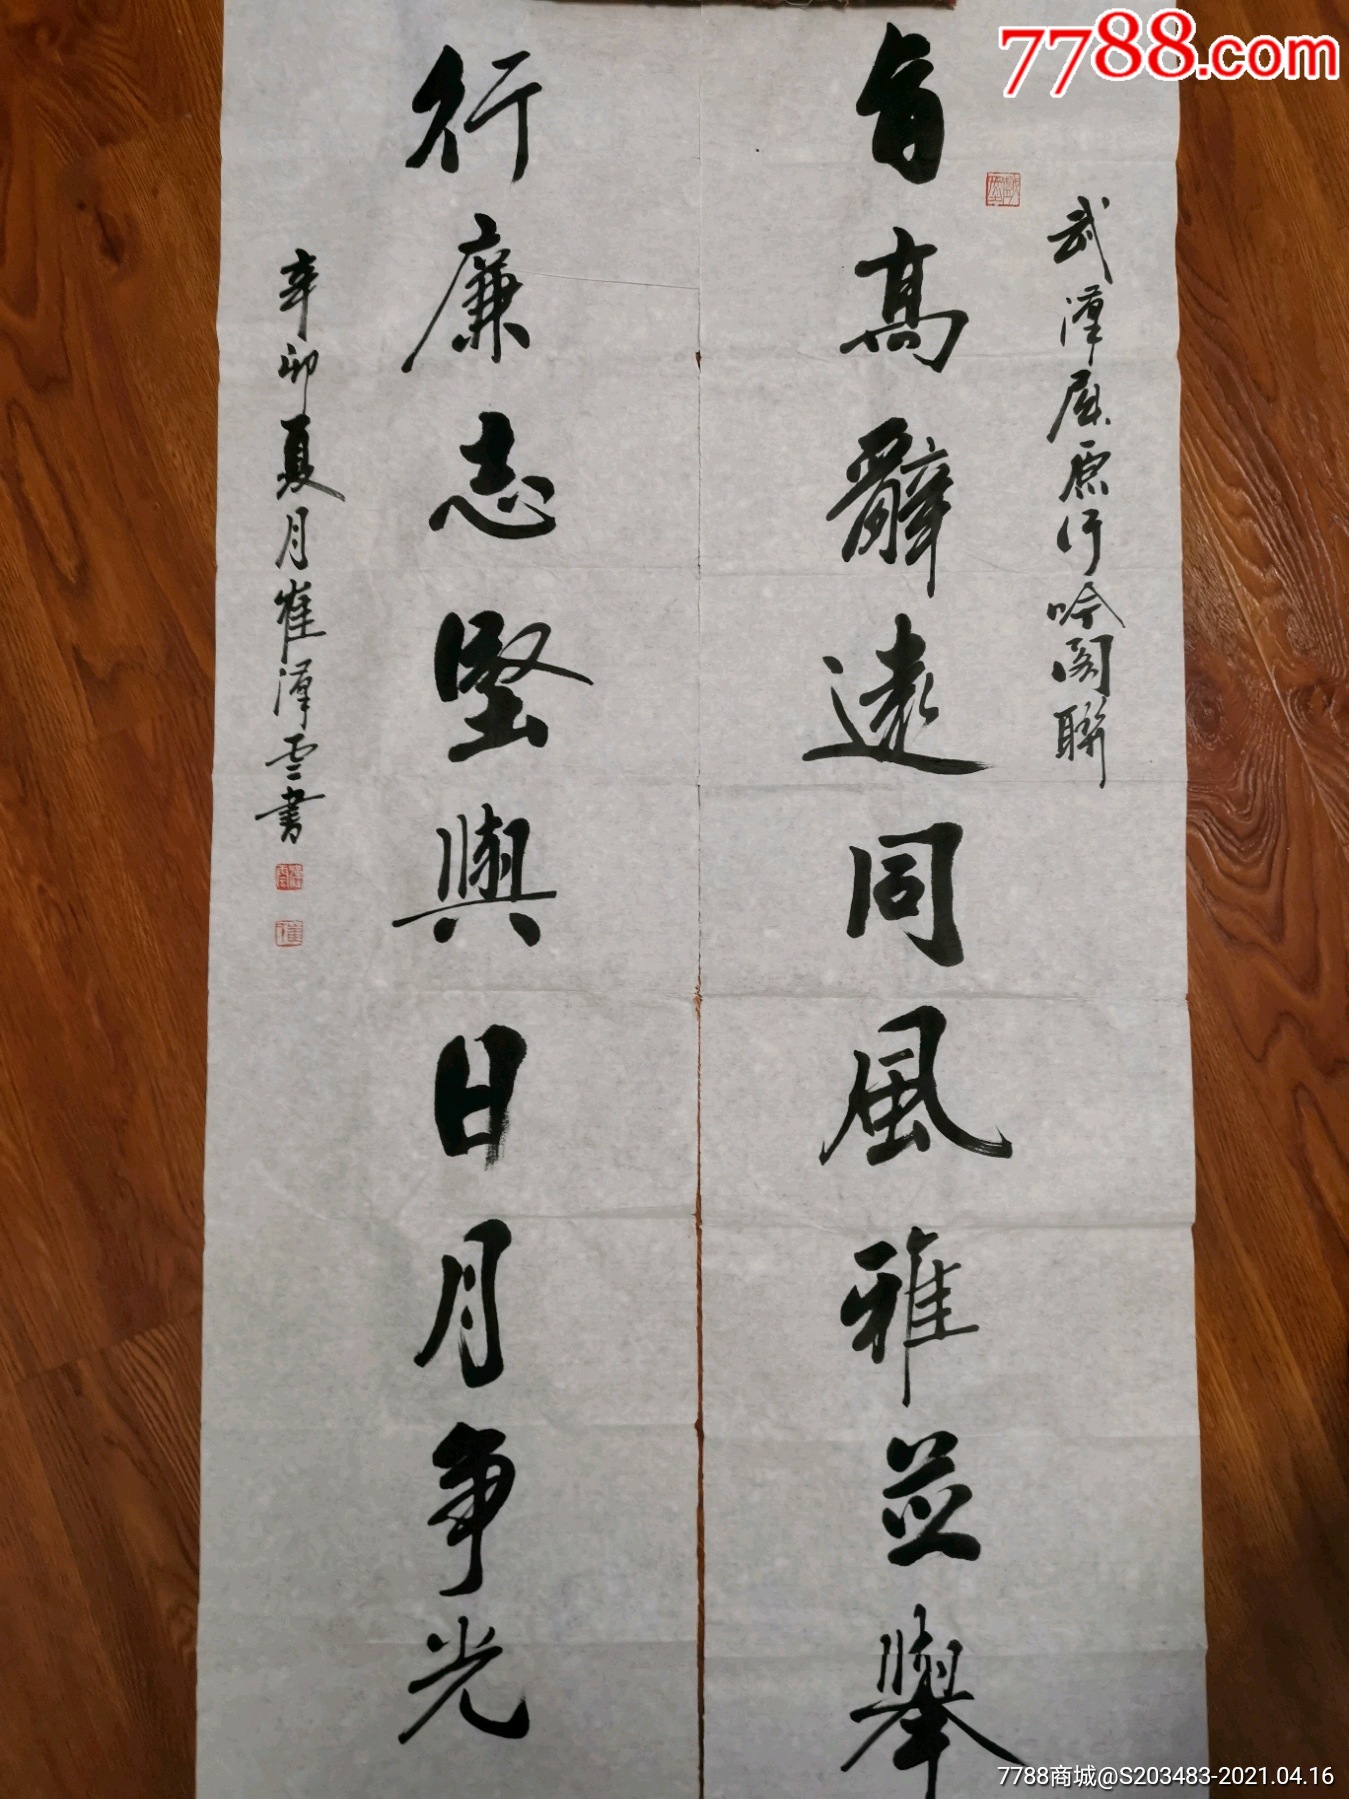 7788.com
武漢屈原行吟阁聯
旨高辭遠同風雅並舉
行廉志堅與日月争光
辛卯夏月崔漢雲書
7788商城@S203483-2021.04.16